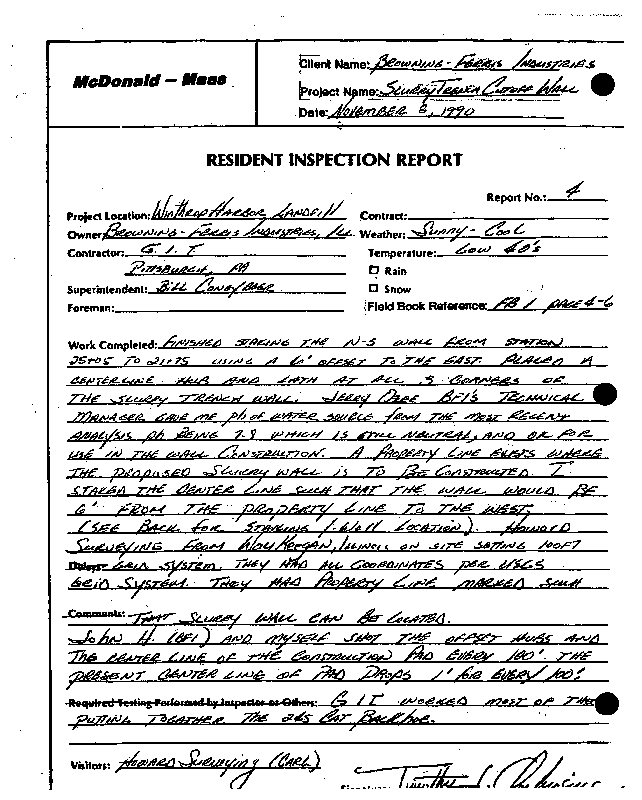 McDonald – Maas
Client Name: Browning-Ferris Industries
Project Name: Slurry Trench Cutoff Wall
Date: November 8, 1990
RESIDENT INSPECTION REPORT
Report No.: 4
Project Location: Winthrop Harbor Landfill Contract:
Owner: Browning-Ferris Industries, Ill. Weather: Sunny - Cool
Contractor: G.I.T Temperature: Low 40's
Pittsburgh, PA Rain
Superintendent: Bill Snow
Foreman: Field Book Reference: FB 1 page 4-6
Work Completed: Finished staking the N-S wall from station
25+05 to 21+75 using a 61' offset to the east. Placed a
centerline hub and lath at all 9 corners of
the slurry trench wall. Jerry BFI's Technical
Manager gave me ph of water source from the most recent
analysis ph being 7.9 which is still neutral, and OK for
use in the wall construction. A property line exists where
the proposed slurry wall is to be constructed. I
staked the center line such that the wall would be
6' from the property line to the west,
(see back for staking wall location). Howard
Surveying from Waukeegan, Illinois on site setting 100ft
Delays: grid system. They had all coordinates per USGS
grid system. They had property line marked such
Comments: that slurry wall can be located.
John H. (BFI) and myself shot the offset hubs and
the center line of the construction pad every 100' the
present center line of pad drops 1' for every 100'.
Required Testing Performed by Inspector or Others: GIT worked most of the
putting togeather the 245 Cat Backhoe.
Visitors: Howard Surveying (Carl)